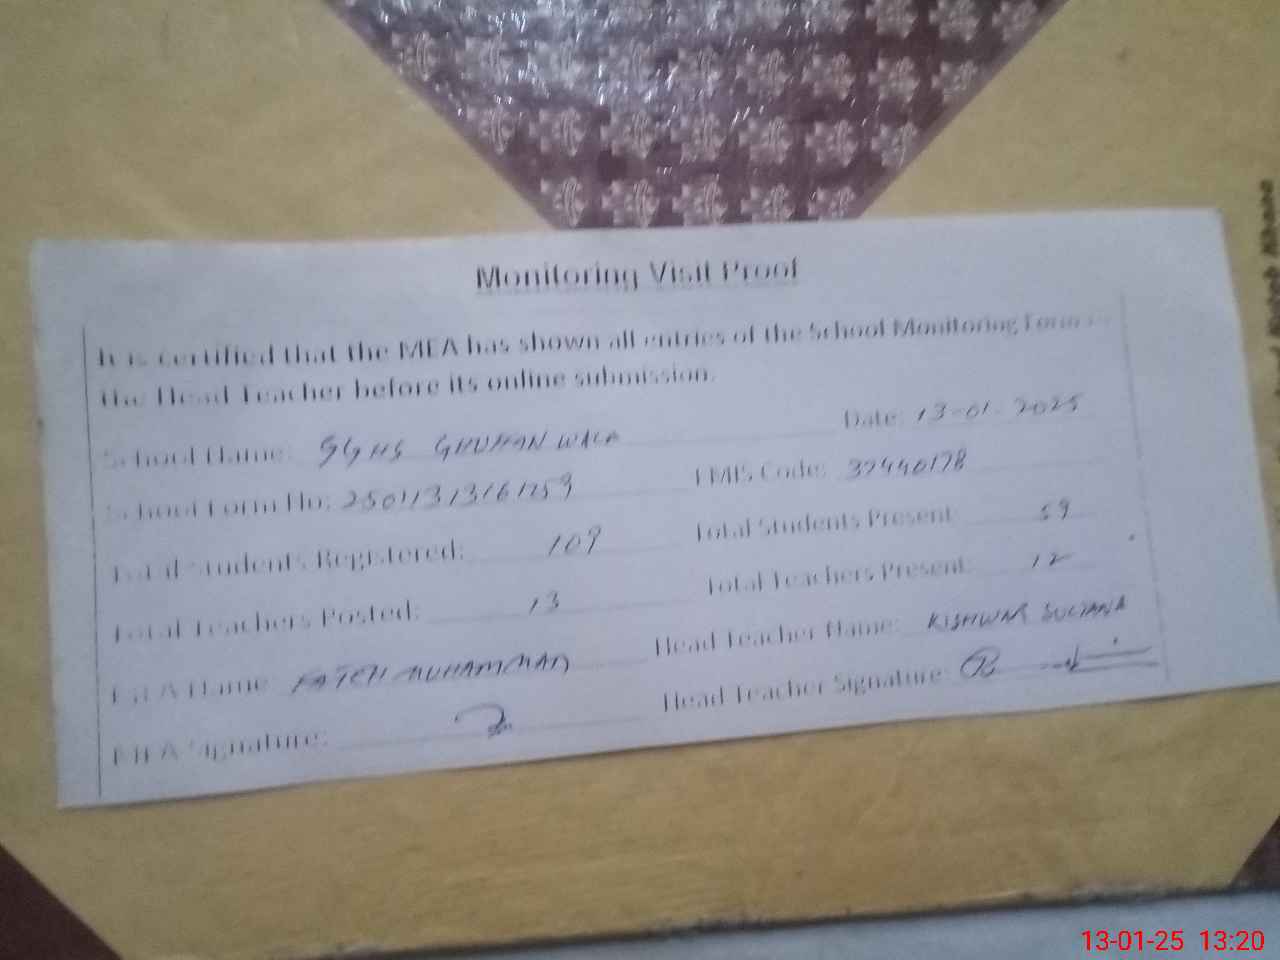 Monitoring Visit Proof
It is certified that the MEA has shown all entries of the School Monitoring Form to
the Head Teacher before its online submission.
School Name: GGHS GHUMAN WALA Date: 13-01-2025
School Form No: EMIS Code: 37440178
Total Students Registered: 109 Total Students Present: 59
Total Teachers Posted: 13 Total Teachers Present: 12
MEA Name: FATEH MUHAMMAD Head Teacher Name: KISHWAR SULTANA
MEA Signature: Head Teacher Signature:
13-01-25 13:20